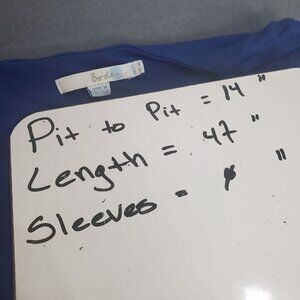 Boden
Pit to Pit = 14 "
Length = 47 "
Sleeves = ø "